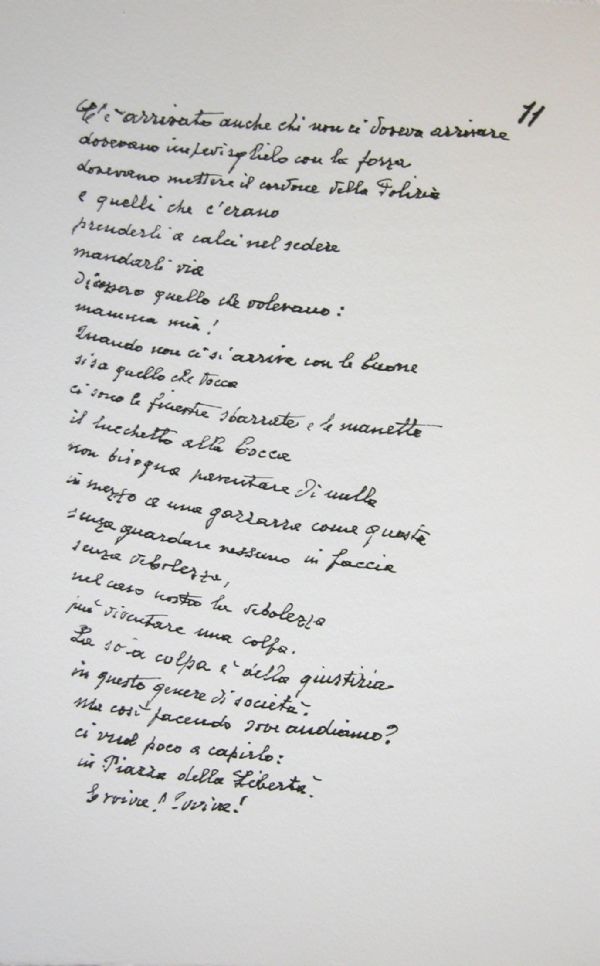 11
C'è arrivato anche chi non ci doveva arrivare
dovevano impedirglielo con la forza
dovevano mettere il cordone della Polizia
e quelli che c'erano
prenderli a calci nel sedere
mandarli via
Dicessero quello che volevano:
mamma mia!
Quando non ci si arriva con le buone
si sa quello che tocca
ci sono le finestre sbarrate e le manette
il lucchetto alla bocca
non bisogna paventare di nulla
in mezzo a una gazzarra come questa
senza guardare nessuno in faccia
senza debolezze,
nel caso nostro la debolezza
può diventare una colpa.
La colpa è della giustizia
in questo genere di società.
Ma così facendo dove andiamo?
ci vuol poco a capirlo:
in Piazza della Libertà.
Evviva! Evviva!